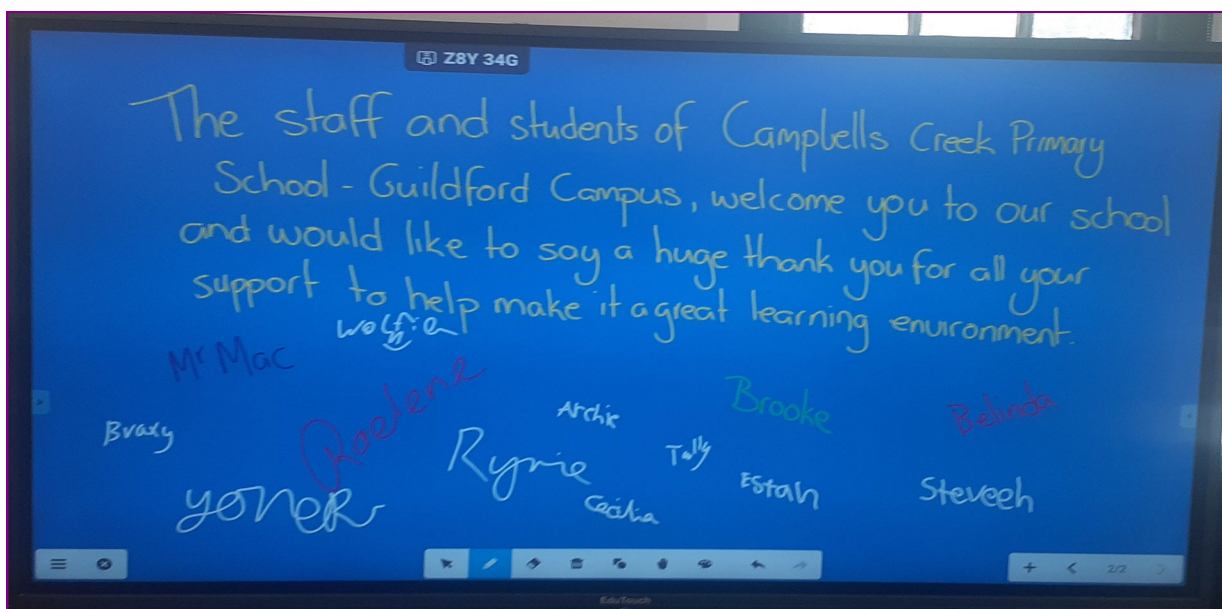 Z8Y 34G
The staff and students of Campbells Creek Primary
School - Guildford Campus, welcome you to our school
and would like to say a huge thank you for all your
support to help make it a great learning environment.
Wolfie
Mr Mac
Raelene
Archie
Brooke
Belinda
Braxy
Rynie
Tally
Estah
Steveeh
yoner
Cecilia
2/2
EduTouch